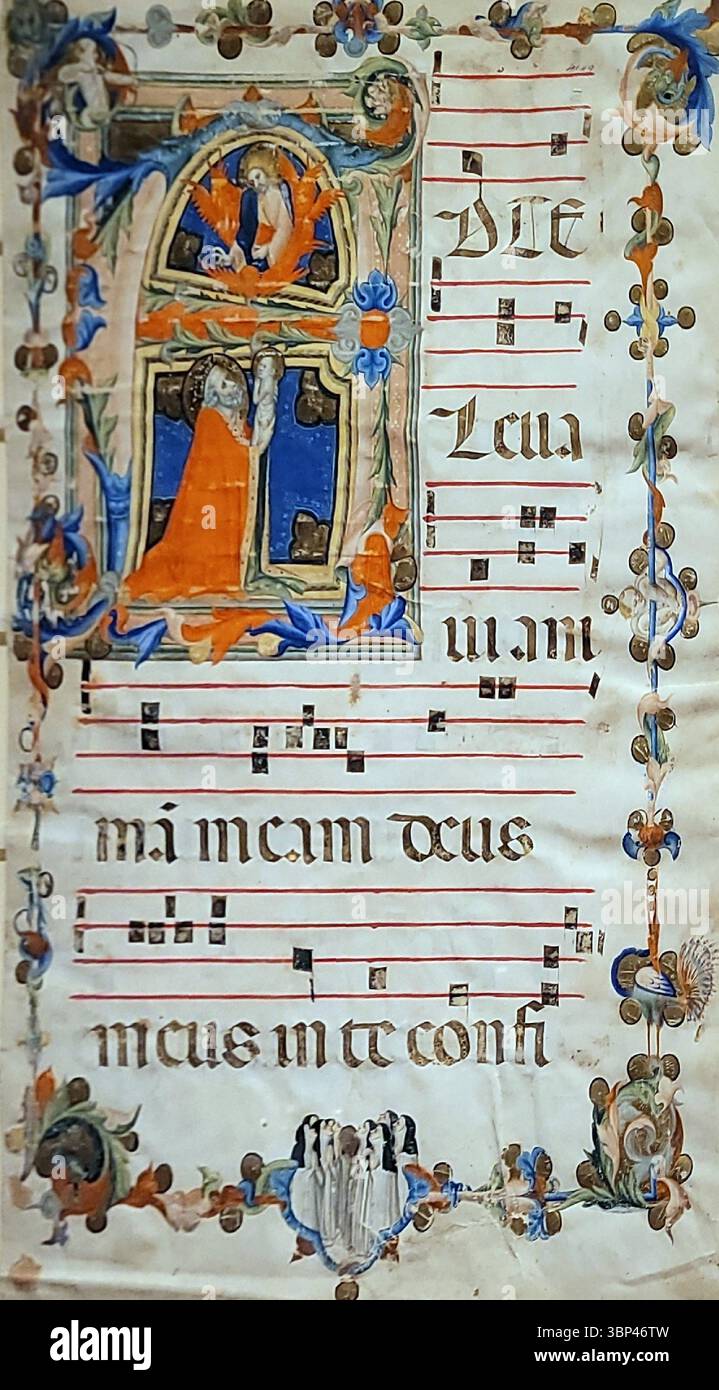 AD TE
Leua
ui ani
mā meam deus
meus in te confi
alamy
Image ID: 3BP46TW
www.alamy.com